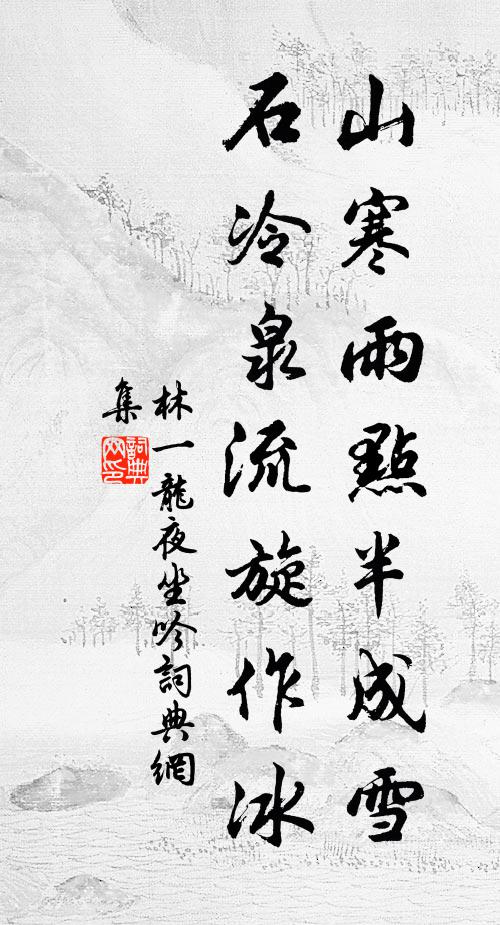 山寒雨點半成雪
石冷泉流旋作冰
林一龍夜坐吟詞典網
集
詞典網印